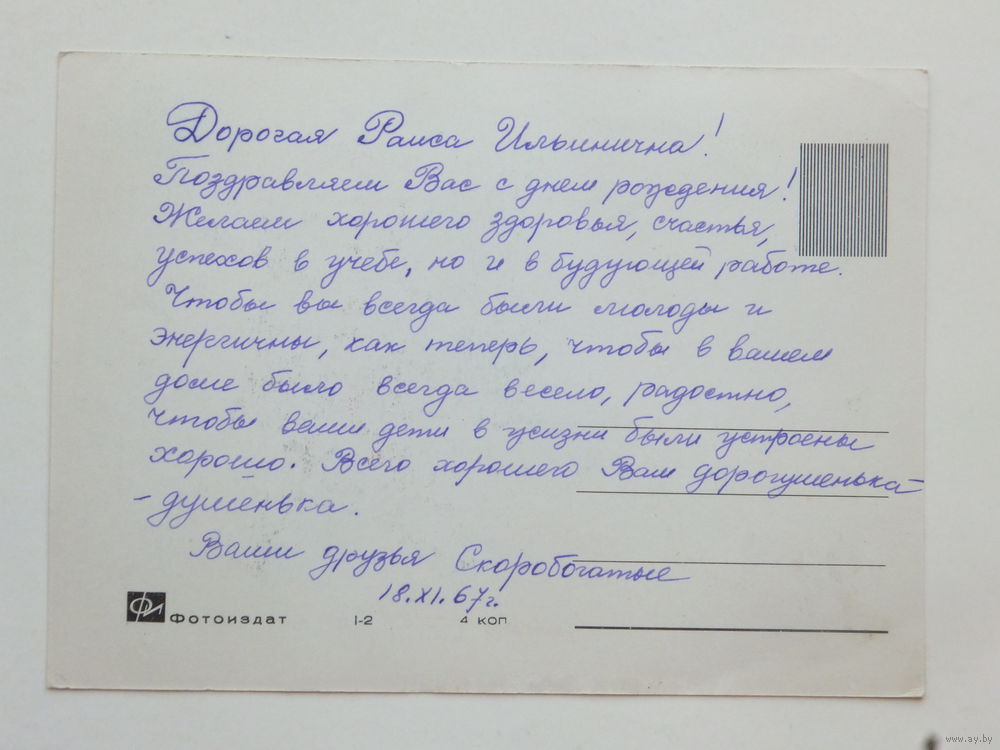 Дорогая Раиса Ильинична!
Поздравляем Вас с днем рождения!
Желаем хорошего здоровья, счастья,
успехов в учебе, но и в будующей работе.
Чтобы вы всегда были молоды и
энергичны, как теперь, чтобы в вашем
доме было всегда весело, радостно,
чтобы ваши дети в жизни были устроены
хорошо. Всего хорошего Вам дорогушенька-
-душенька.
Ваши друзья Скоробогатые
18.XI.67г.
ФИ Фотоиздат 1-2 4 коп
www.ay.by